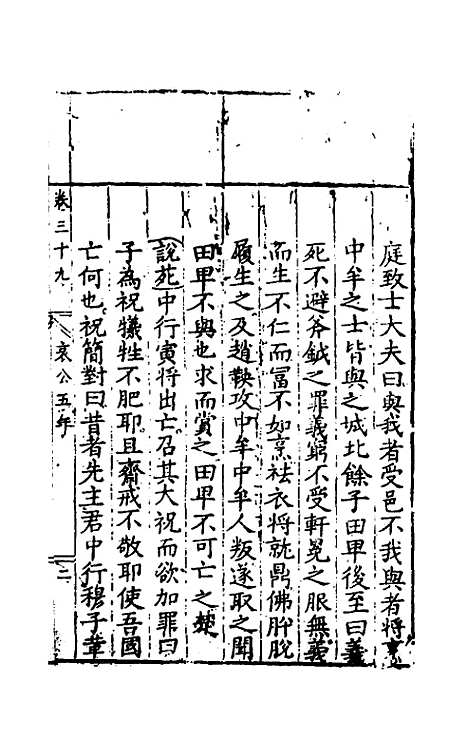 庭致士大夫曰與我者受邑不我與者將烹
中牟之士皆與之城北餘子田甲後至曰義
死不避斧鉞之罪義窮不受軒冕之服無義
而生不仁而冨不如烹袪衣將就鼎佛肸脫
履生之及趙鞅攻中牟中牟人叛遂取之聞
田甲不與也求而賞之田甲不可亡之楚
說苑中行寅將出亡召其大祝而欲加罪曰
子為祝犧牲不肥耶且齋戒不敬耶使吾國
亡何也祝簡對曰昔者先主君中行穆子韋
卷三十九 哀公五年 二